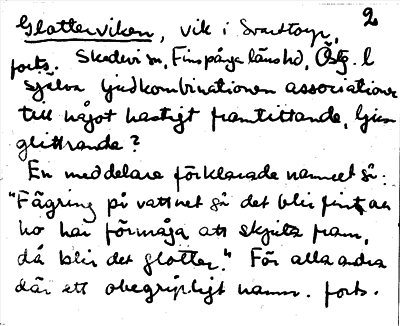 Glotterviken, vik i Svarttorp, 2
forts. Skedevi sn, Finspånga länshd, Östg. l
själva ljudkombinationen associationer
till något hastigt framtittande, ljus
glittrande?
En meddelare förklarade namnet så:
"Fägring på vattnet så det blir fint, an
ho har förmåga att skjuta fram,
då blir det glotter." För alla andra
där ett obegripligt namn. forts.